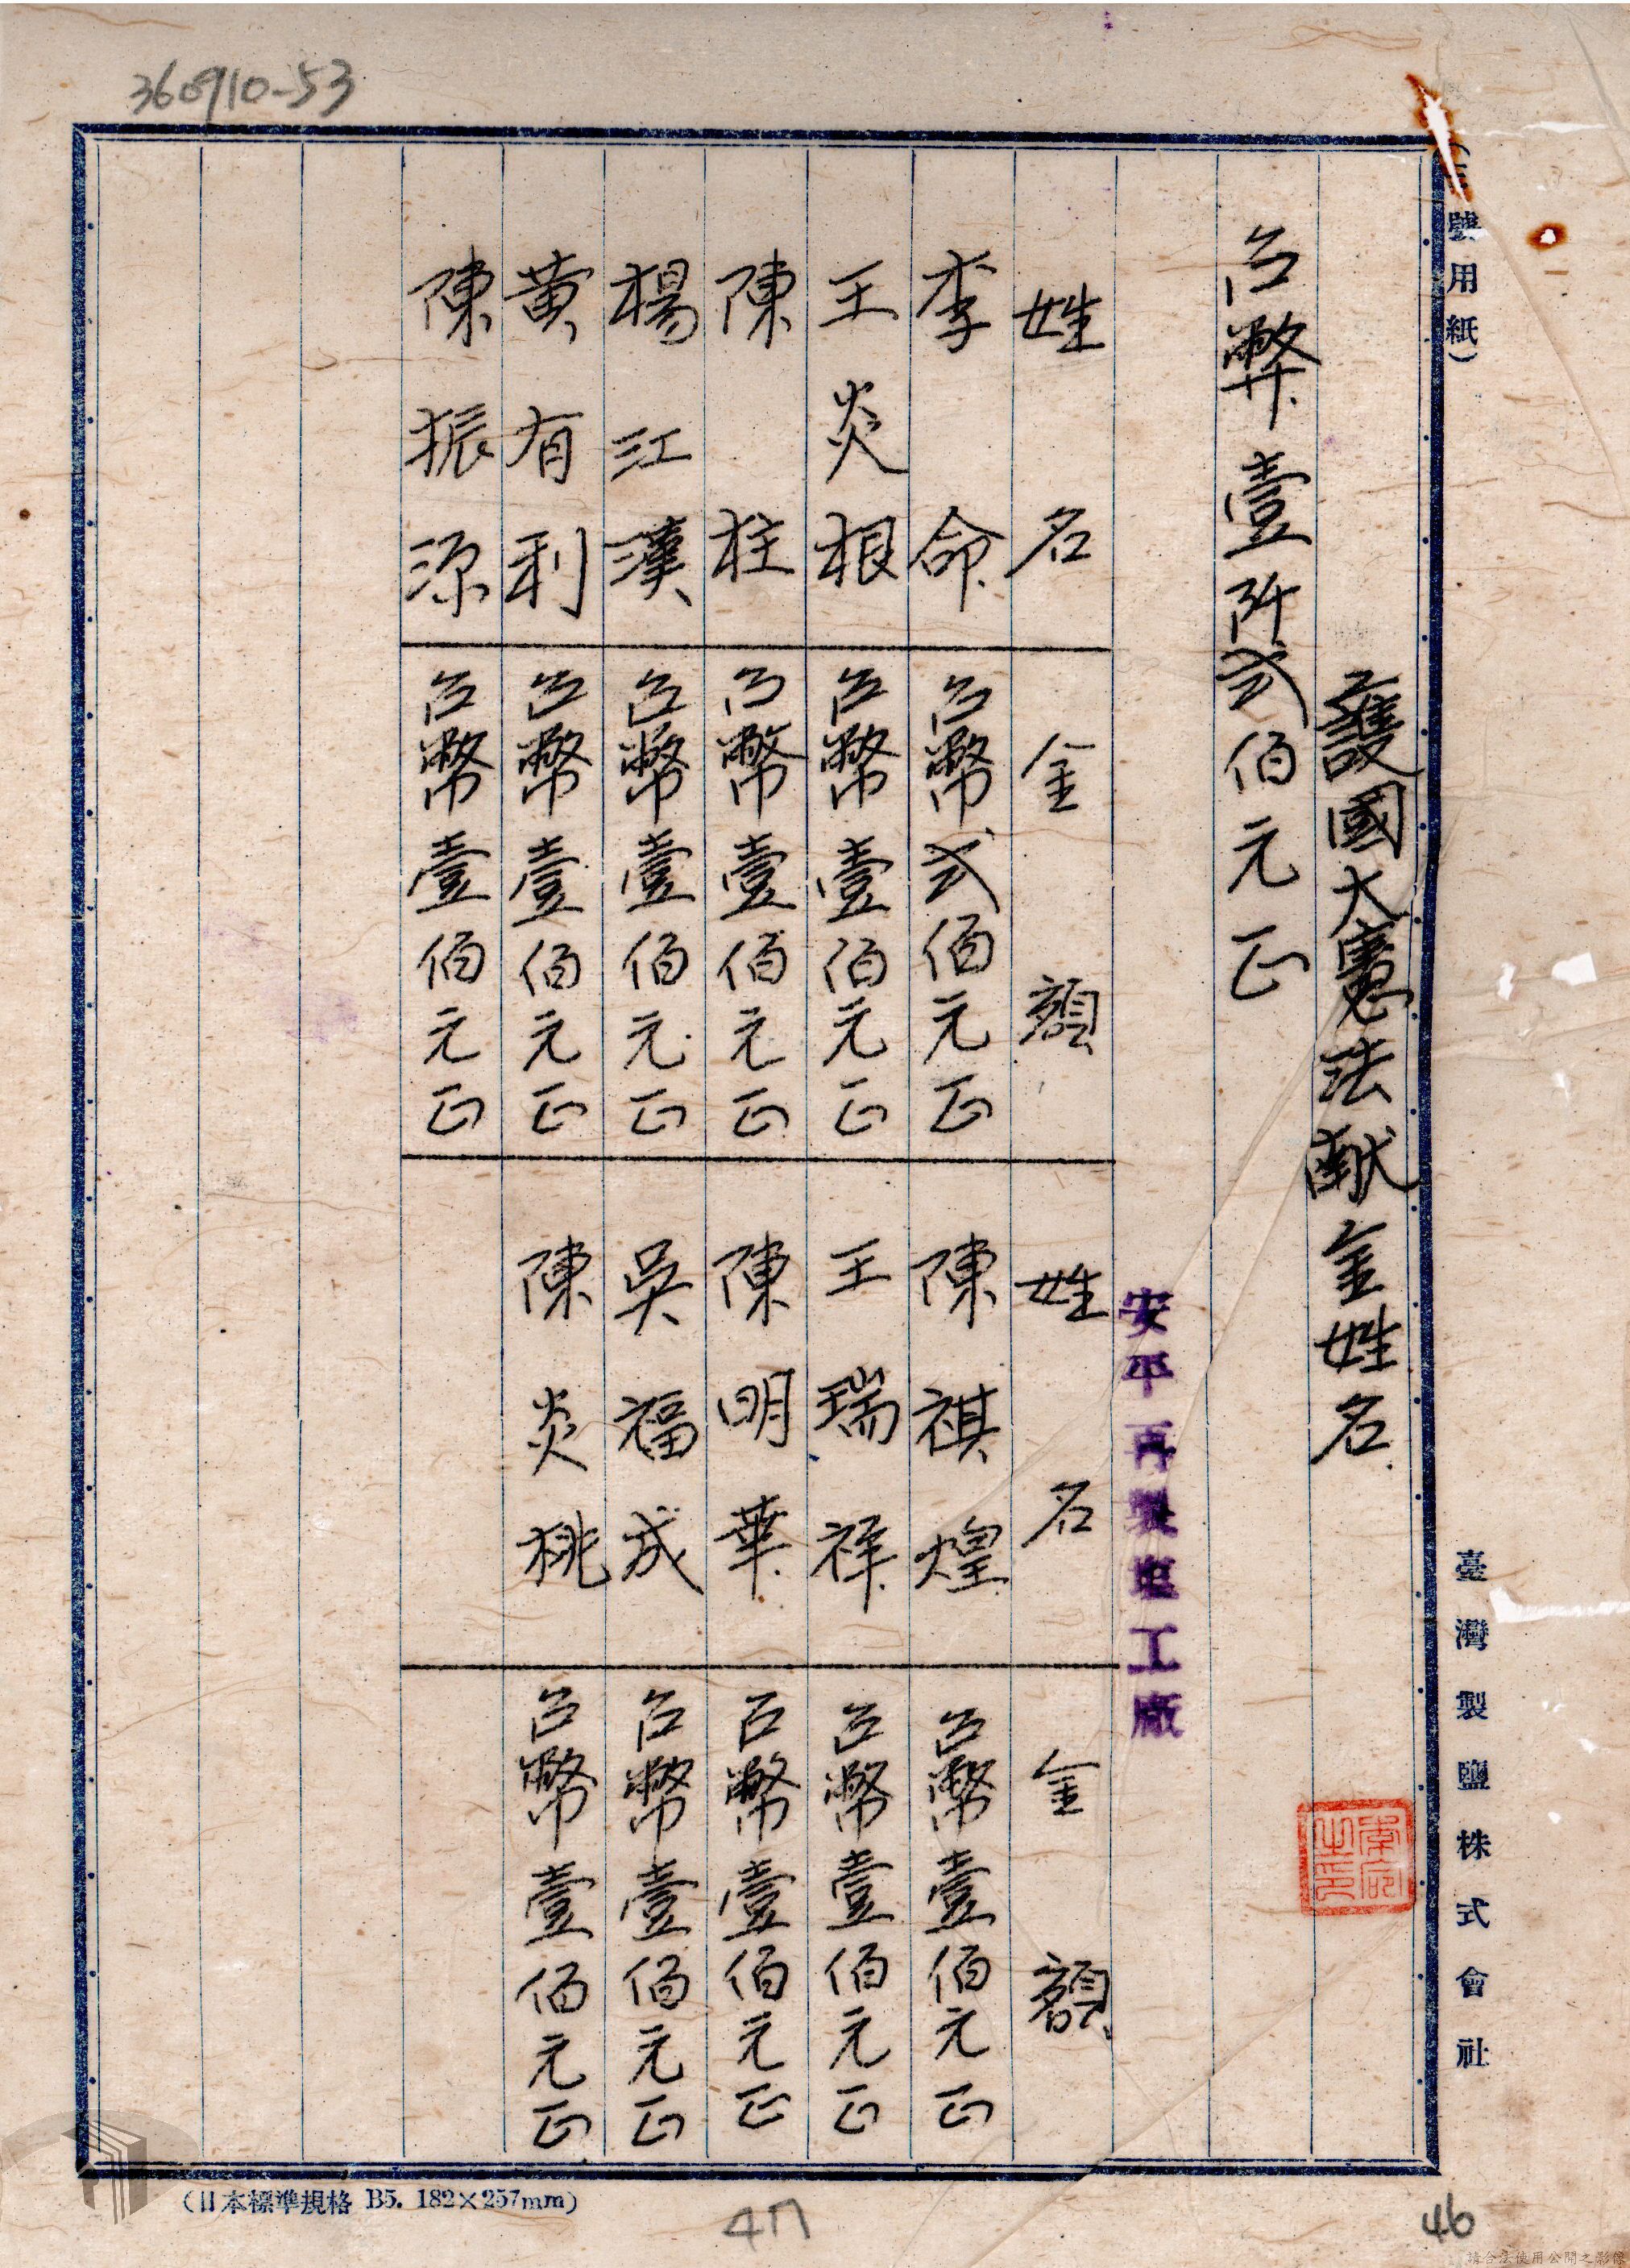 360910-53
號用紙)
護國大憲法献金姓名
台幣壹阡弍佰元正
安平再製鹽工廠
姓名 金額 姓名 金額
李命 台幣弍佰元正 陳祺煌 台幣壹佰元正
王炎根 台幣壹佰元正 王瑞祥 台幣壹佰元正
陳柱 台幣壹佰元正 陳明華 台幣壹佰元正
楊江漢 台幣壹佰元正 吳福成 台幣壹佰元正
黄有利 台幣壹佰元正 陳炎桃 台幣壹佰元正
陳振源 台幣壹佰元正
臺灣製鹽株式會社
(日本標準規格 B5. 182×257mm)
47
46
請合法使用公開之影像